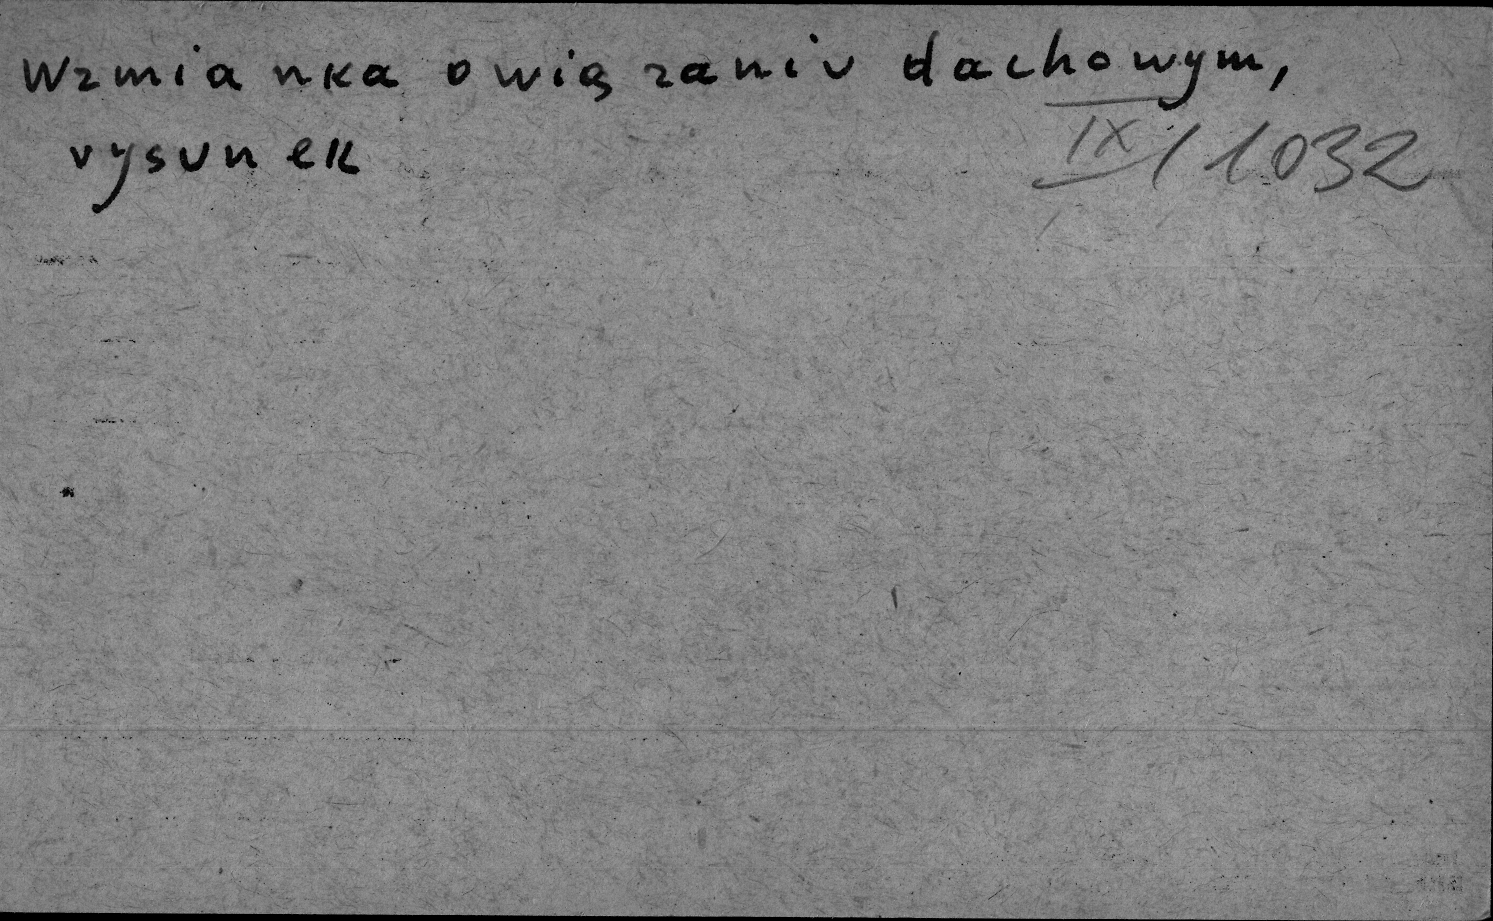 Wzmianka o wią zaniu dachowym,
rysunek
IX/1032